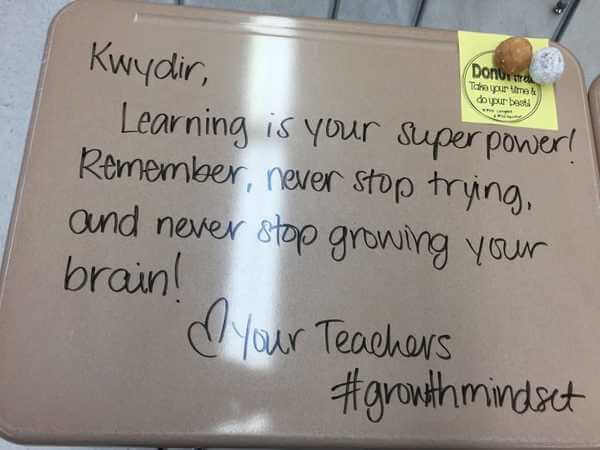 Kwydir,
Learning is your superpower!
Remember, never stop trying,
and never stop growing your
brain!
♡ Your Teachers
#growthmindset
Take your time &
do your best!